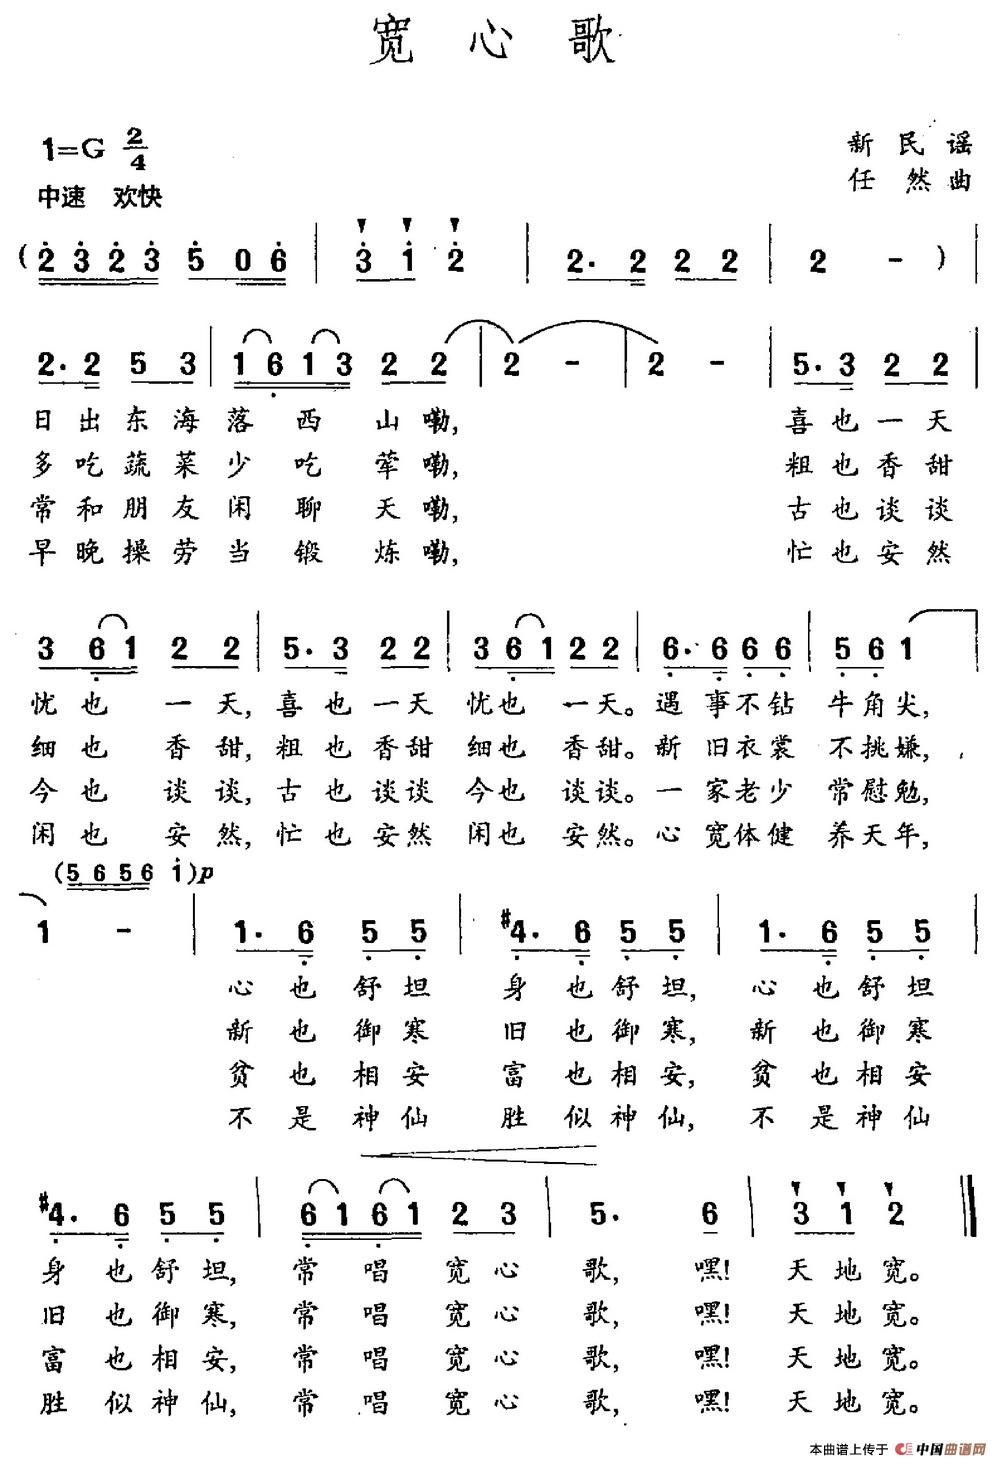 宽心歌
1=G 2/4
新民谣
中速 欢快
任然曲
(2 3 2 3 5 0 6 | 3 1 2 | 2. 2 2 2 | 2 - ) |
2. 2 5 3 | 1 6 1 3 2 2 | 2 - | 2 - | 5. 3 2 2 |
日出东海落西山嘞, 喜也一天
多吃蔬菜少吃荤嘞, 粗也香甜
常和朋友闲聊天嘞, 古也谈谈
早晚操劳当锻炼嘞, 忙也安然
3 6 1 2 2 | 5. 3 2 2 | 3 6 1 2 2 | 6. 6 6 6 | 5 6 1 |
忧也一天,喜也一天忧也一天。遇事不钻牛角尖,
细也香甜,粗也香甜细也香甜。新旧衣裳不挑嫌,
今也谈谈,古也谈谈今也谈谈。一家老少常慰勉,
闲也安然,忙也安然闲也安然。心宽体健养天年,
(5 6 5 6 1) p
1 - | 1. 6 5 5 | #4. 6 5 5 | 1. 6 5 5 |
心也舒坦身也舒坦,心也舒坦
新也御寒旧也御寒,新也御寒
贫也相安富也相安,贫也相安
不是神仙胜似神仙,不是神仙
#4. 6 5 5 | 6 1 6 1 2 3 | 5. 6 | 3 1 2 ‖
身也舒坦,常唱宽心歌,嘿!天地宽。
旧也御寒,常唱宽心歌,嘿!天地宽。
富也相安,常唱宽心歌,嘿!天地宽。
胜似神仙,常唱宽心歌,嘿!天地宽。
本曲谱上传于 中国曲谱网